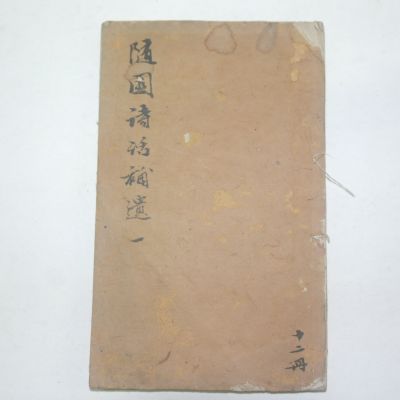 隨園詩话補遺 一
十二冊